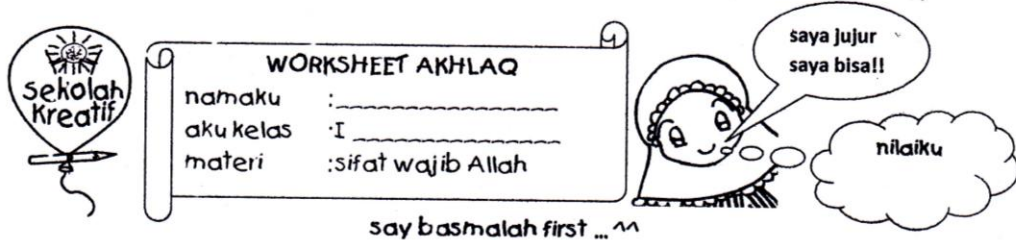 sekolah
kreatif
WORKSHEET AKHLAQ
namaku :
aku kelas :I
materi :sifat wajib Allah
saya jujur
saya bisa!!
nilaiku
say basmalah first ... ^^